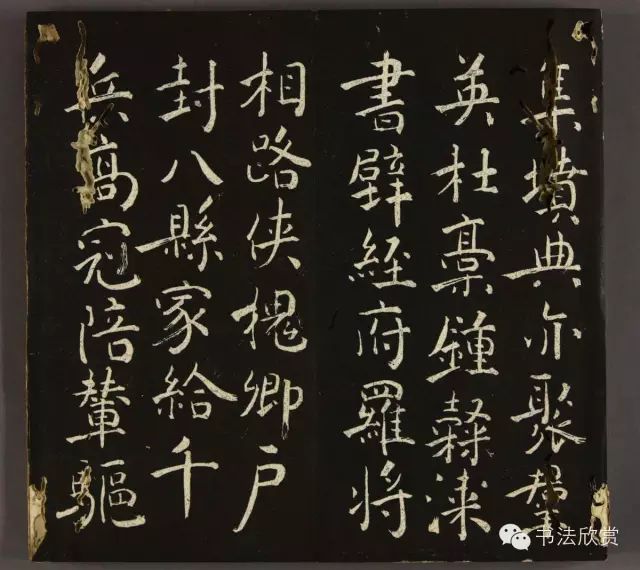 集墳典亦聚羣
英杜稾鍾隸漆
書壁經府羅将
相路侠槐卿户
封八縣家給千
兵髙冠陪輦驅
书法欣赏